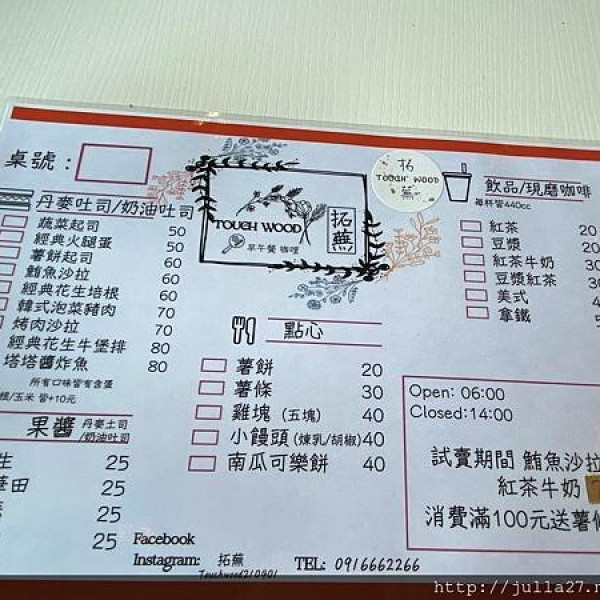 桌號：
TOUCH WOOD
拓蕪
早午餐 咖哩
拓
TOUCH WOOD
蕪
飲品/現磨咖啡
每杯皆440cc
紅茶 20
豆漿 20
紅茶牛奶 30
豆漿紅茶 30
美式
拿鐵
丹麥吐司/奶油吐司
蔬菜起司 50
經典火腿蛋 50
薯餅起司 60
鮪魚沙拉 60
經典花生培根 60
韓式泡菜豬肉 70
烤肉沙拉 70
經典花生牛堡排 80
塔塔醬炸魚 80
所有口味皆有含蛋
根/玉米 皆+10元
點心
薯餅 20
薯條 30
雞塊 (五塊) 40
小饅頭 (煉乳/胡椒) 40
南瓜可樂餅 40
果醬 丹麥土司
/奶油吐司
生 25
田 25
25
25
Open: 06:00
Closed:14:00
試賣期間 鮪魚沙拉
紅茶牛奶
消費滿100元送薯條
Facebook
Instagram: 拓蕪
Touchwood210901
TEL: 0916662266
http://julla27.